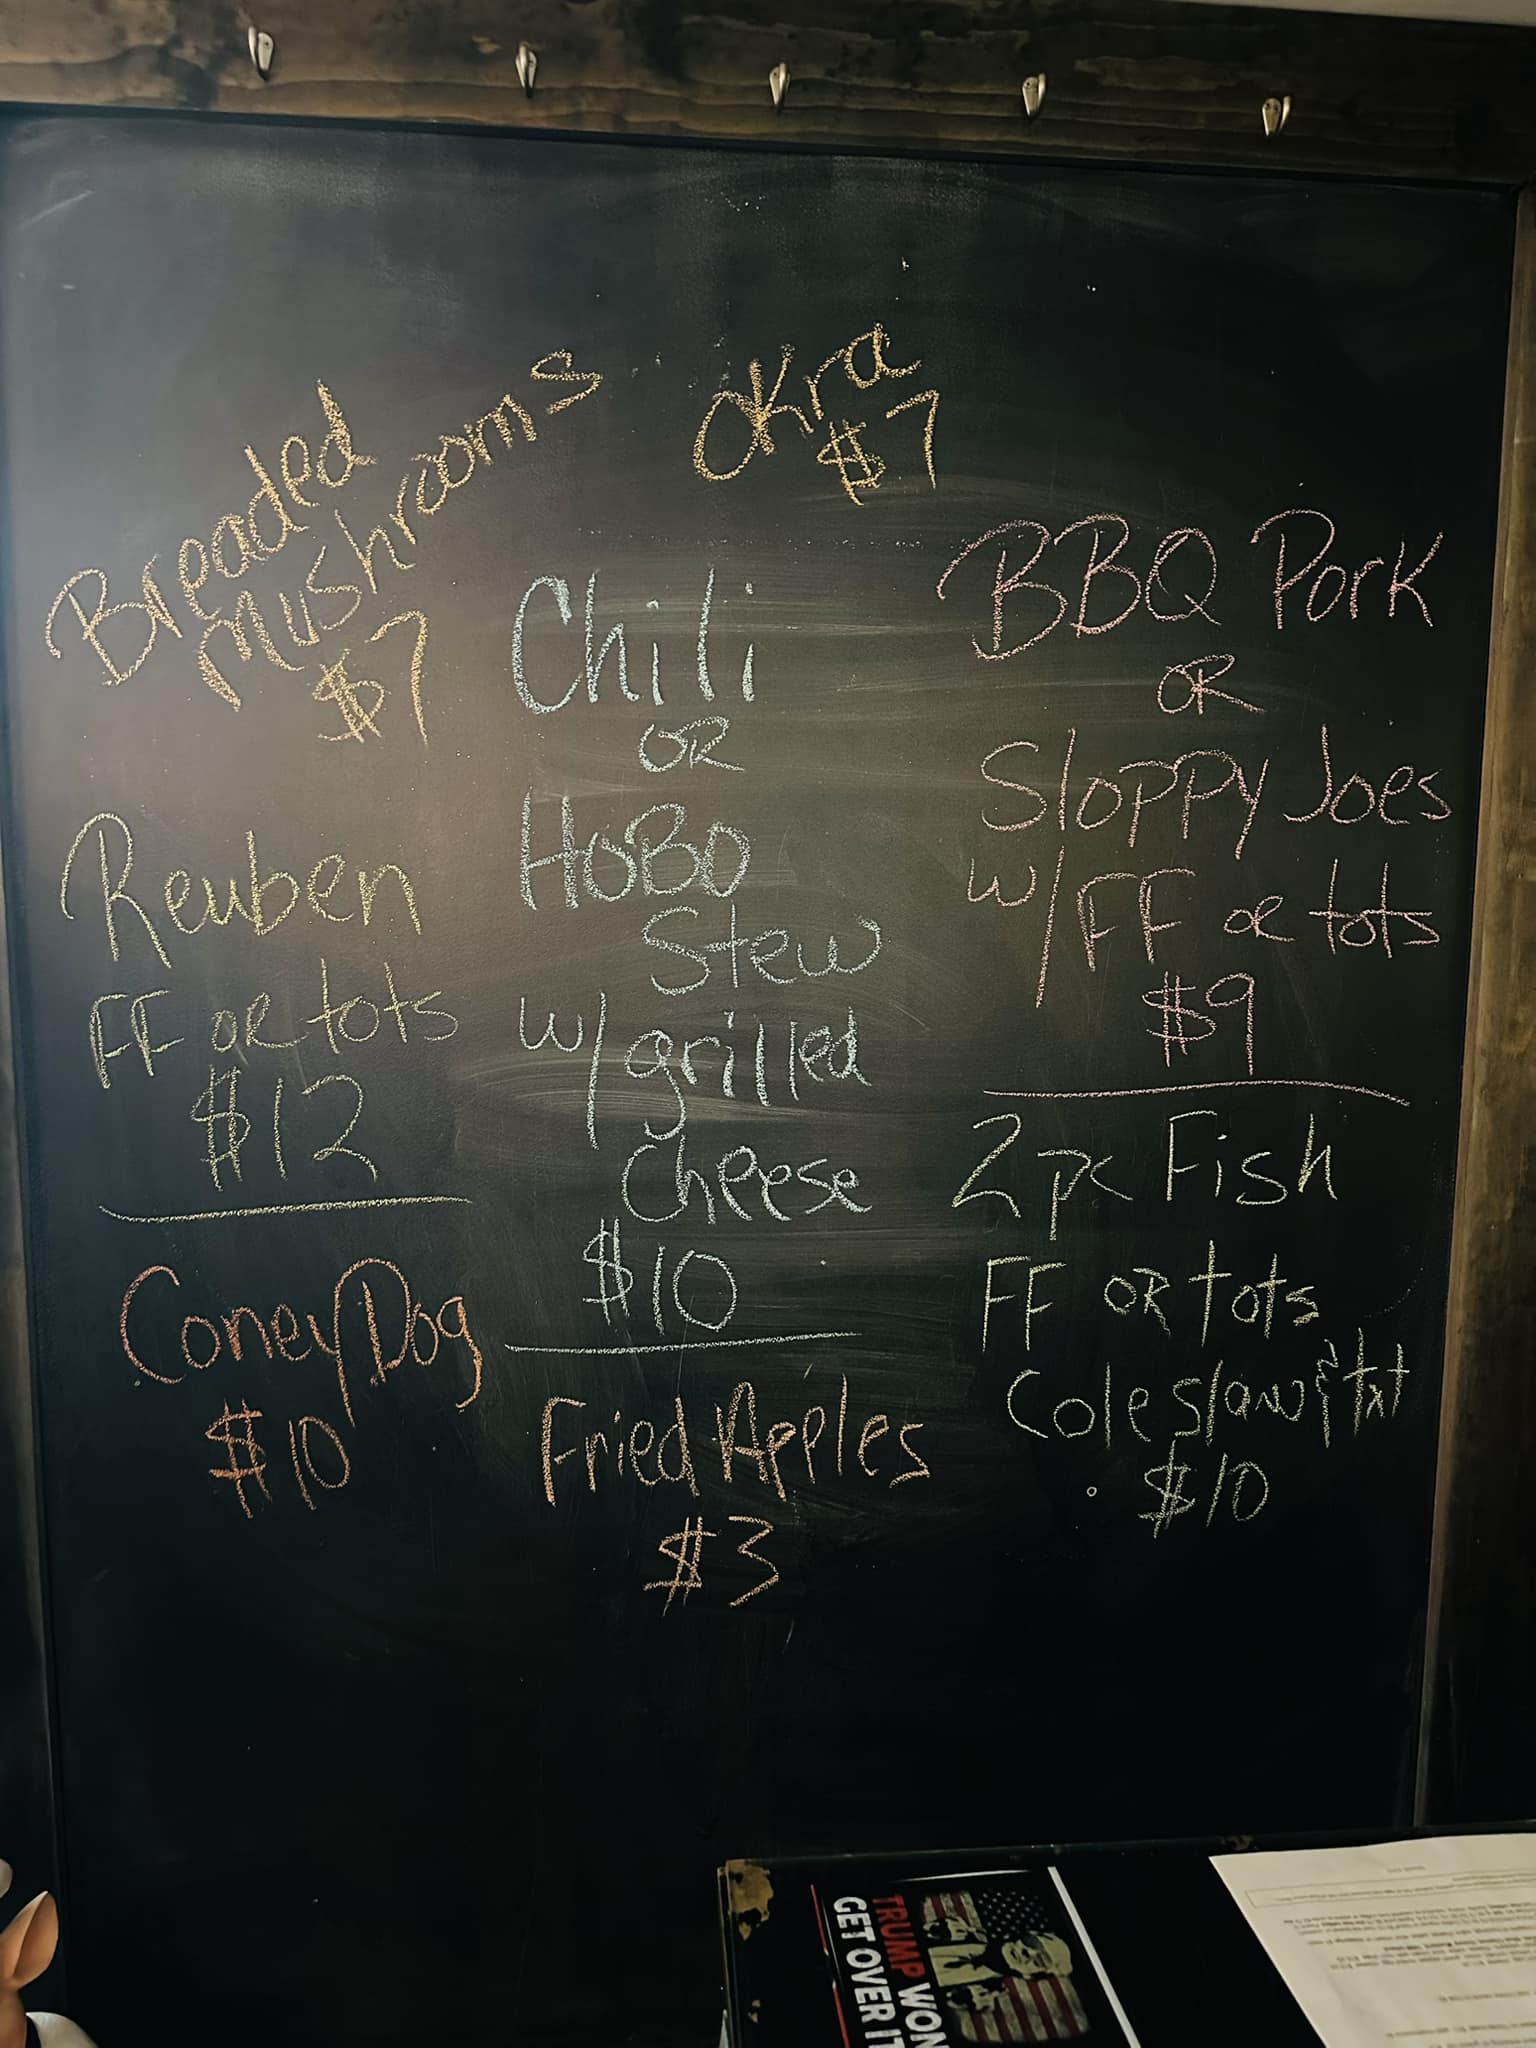 Breaded
Mushrooms
$7
OKra
$7
Reuben
FF OR tots
$12
Coney Dog
$10
Chili
OR
HoBo
Stew
w/grilled
Cheese
$10
Fried Apples
$3
BBQ Pork
OR
Sloppy Joes
w/FF or tots
$9
2pc Fish
FF OR tots
Coleslaw & txt
$10
TRUMP WON
GET OVER IT